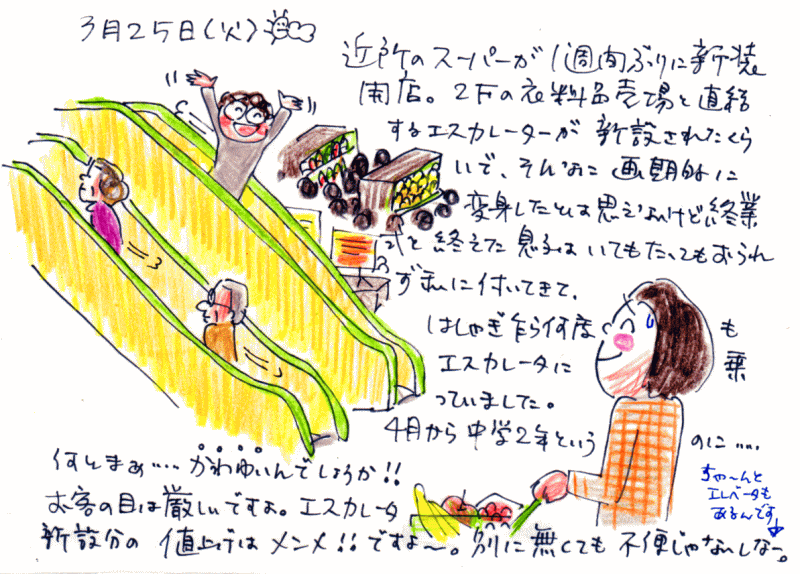 3月25日(火)
近所のスーパーが1週間ぶりに新装
開店。2Fの衣料品売場と直結
するエスカレーターが新設されたくら
いで、そんなに画期的に
変身したとは思えないけど、終業
式を終えた息子はいてもたってもおられ
ず私に付いてきて、
はしゃぎ乍ら何度も
エスカレータに乗
っていました。
4月から中学2年というのに‥‥
何とまぁ‥‥かわゆいんでしょうか!!
お客の目は厳しいですよ。エスカレータ
新設分の値上げはメンメ!!ですよ〜。別に無くても不便じゃないしな〜。
ちゃ〜んと
エレベータも
あるんです